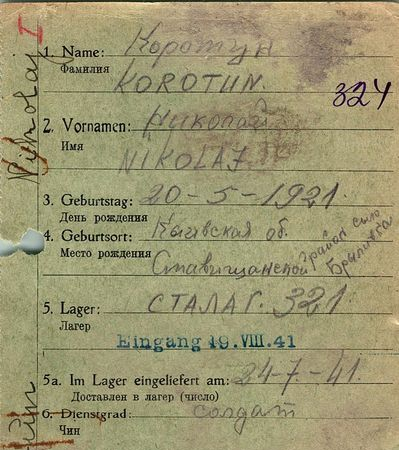 I
1. Name: Коротун
Фамилия
KOROTUN.
324
2. Vornamen: Николай
Имя
NIKOLAJ
3. Geburtstag: 20-5-1921.
День рождения
4. Geburtsort: Кыивская об.
Место рождения
Ставищанской район сило
5. Lager: СТАЛАГ. 321
Лагер
Eingang 19. VIII. 41
5a. Im Lager eingeliefert am: 24-7.-41.
Доставлен в лагер (число)
6. Dienstgrad: солдат
Чин
Nykolaj